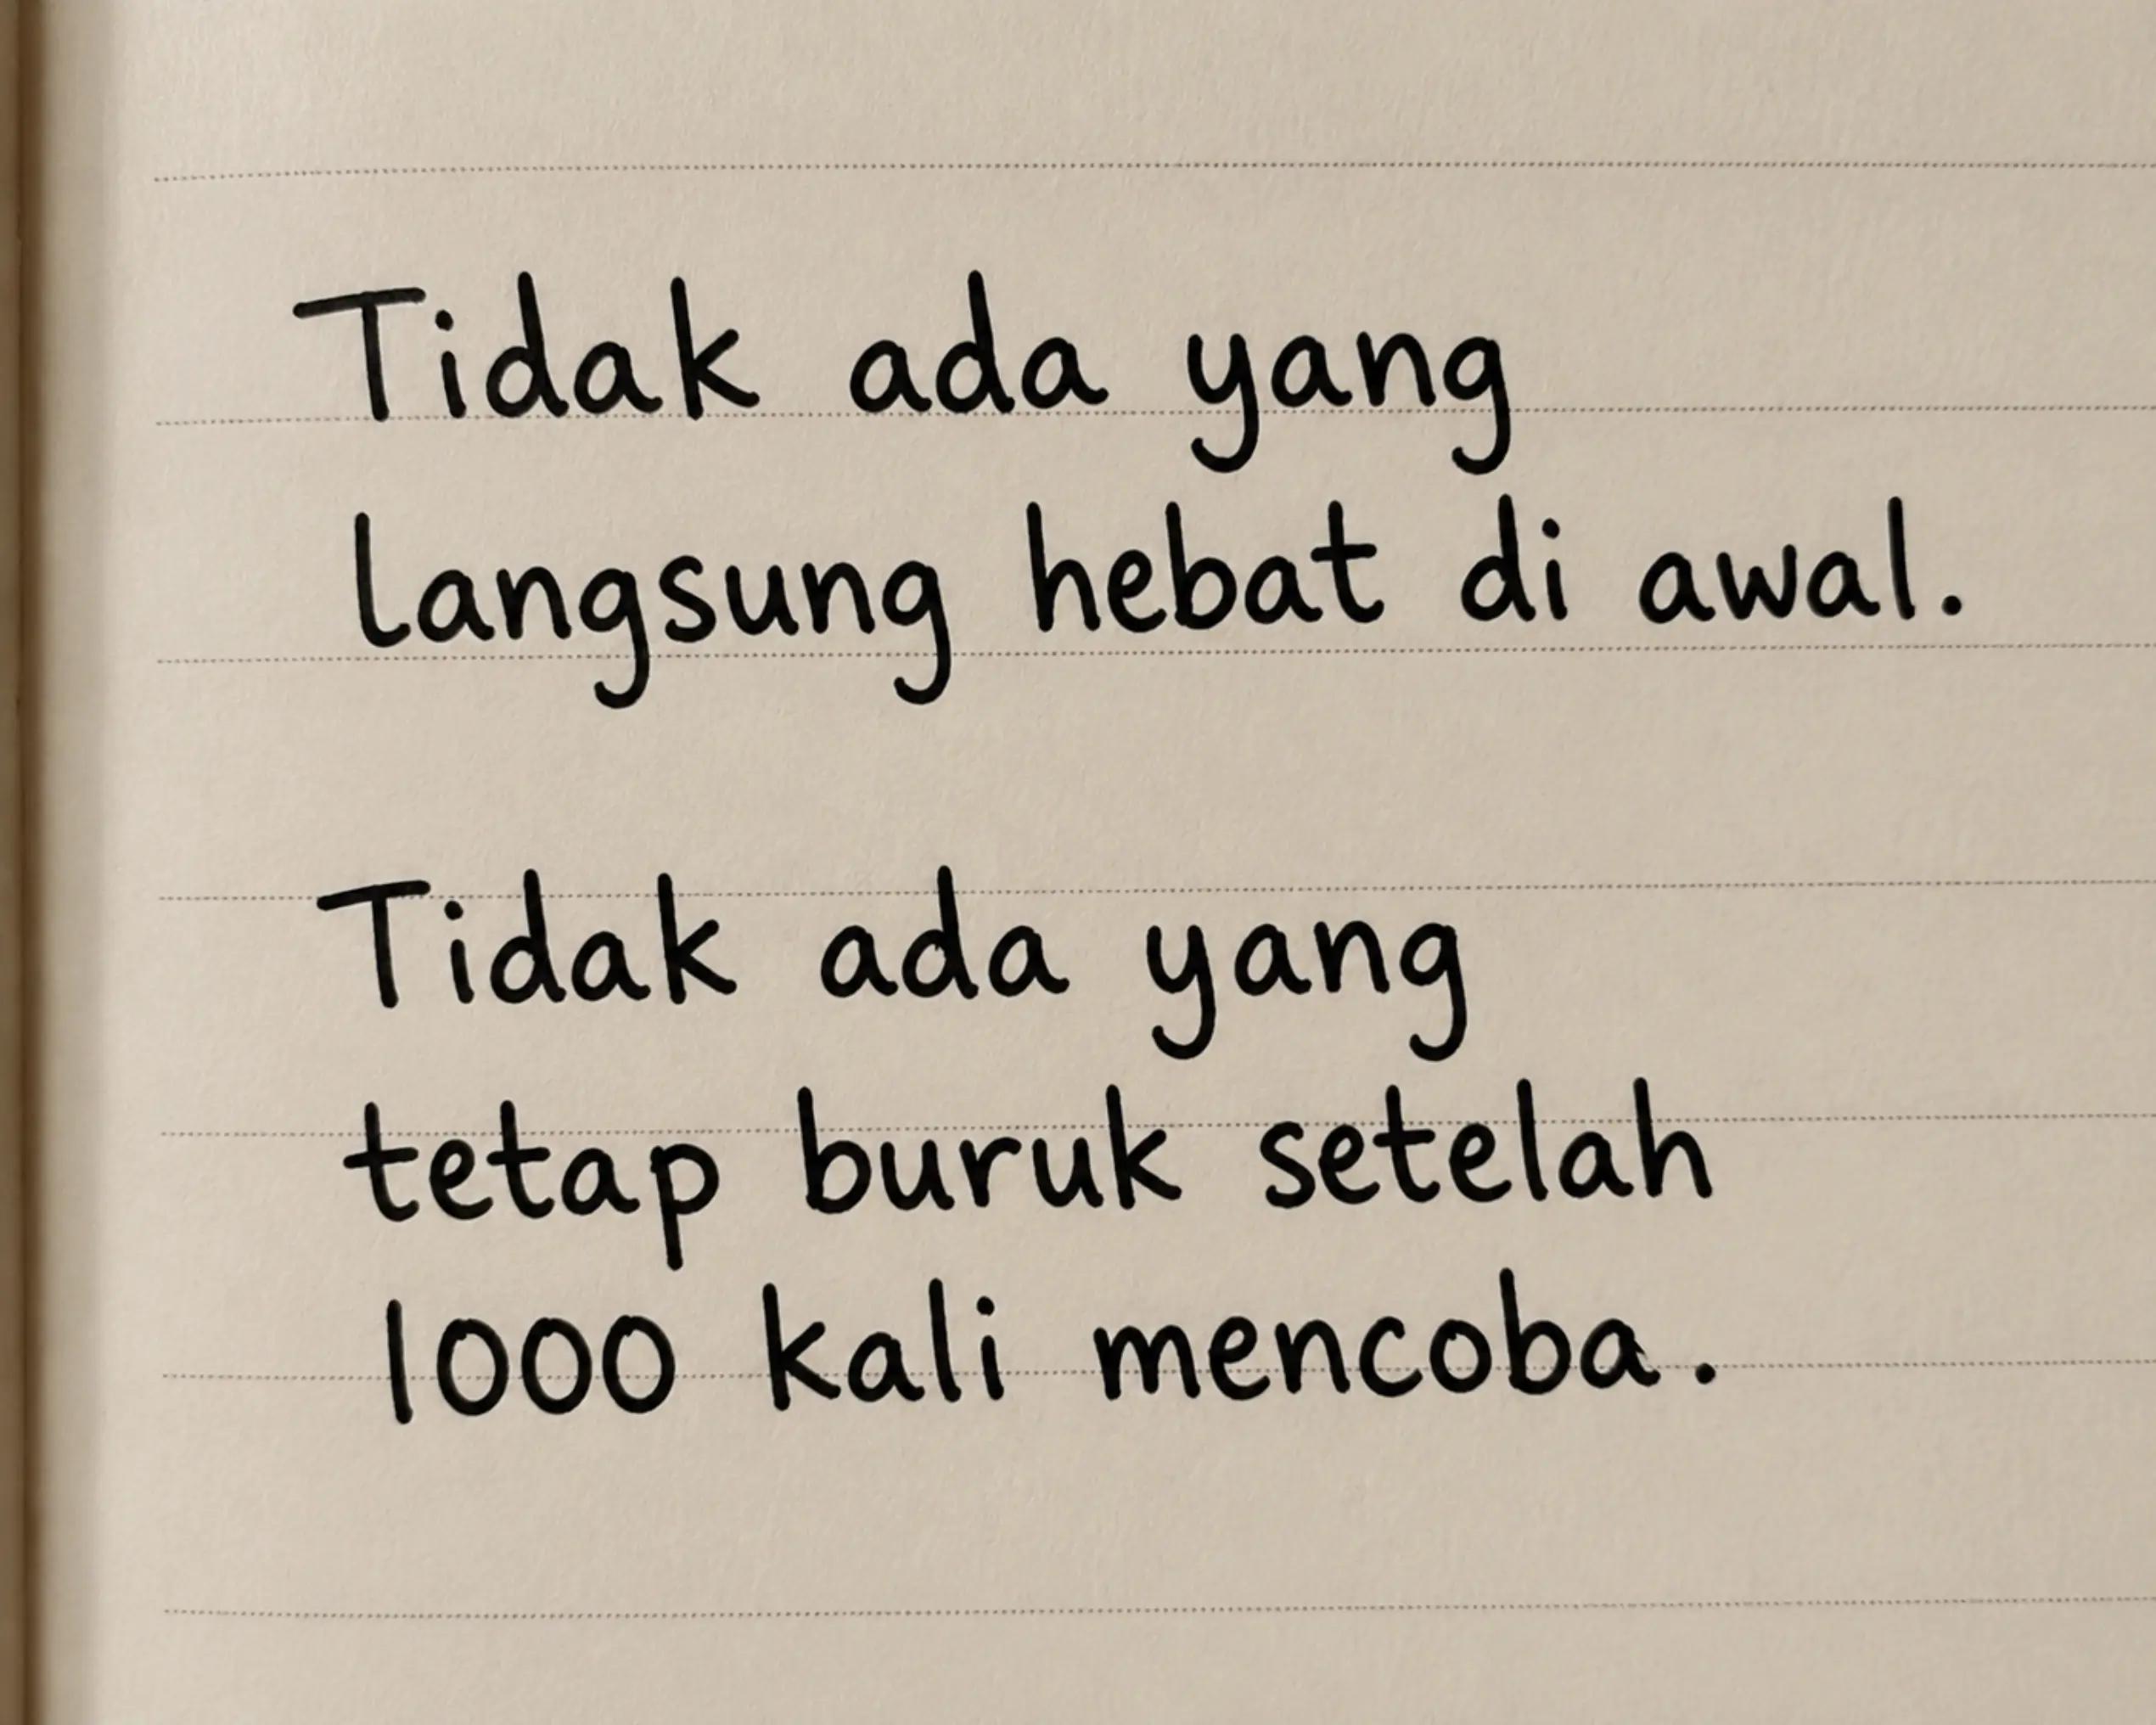 Tidak ada yang
langsung hebat di awal.
Tidak ada yang
tetap buruk setelah
1000 kali mencoba.